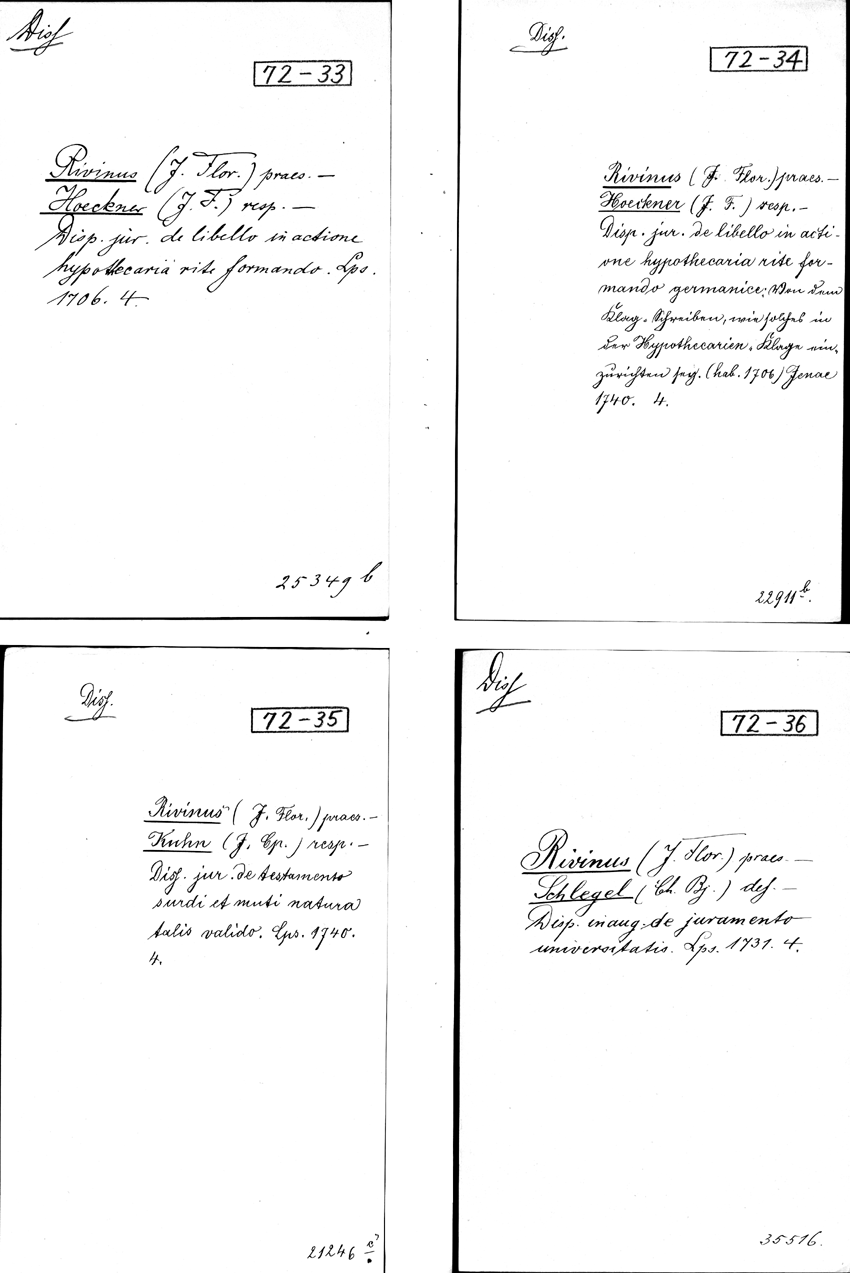 Diss
72-33
Rivinus (J. Flor.) praes. —
Hoeckner (J. F.) resp. —
Disp. jur. de libello in actione
hypothecaria rite formando. Lps.
1706. 4.
25349 b
Diss.
72-34
Rivinus (J. Flor.) praes. —
Hoeckner (J. F.) resp. —
Disp. jur. de libello in acti-
one hypothecaria rite for-
mando germanice: Von dem
Klag-Schreiben, wie solches in
der Hypothecarien-Klage ein-
zurichten sey. (hab. 1706) Jenae
1740. 4.
22911 b.
Diss.
72-35
Rivinus (J. Flor.) praes. —
Kuhn (J. Cp.) resp. —
Diss. jur. de testamento
surdi et muti natura
talis valido. Lps. 1740.
4.
21246
Diss
72-36
Rivinus (J. Flor.) praes. —
Schlegel (Ch. Bj.) def. —
Disp. inaug. de juramento
universitatis. Lps. 1731. 4.
35516.